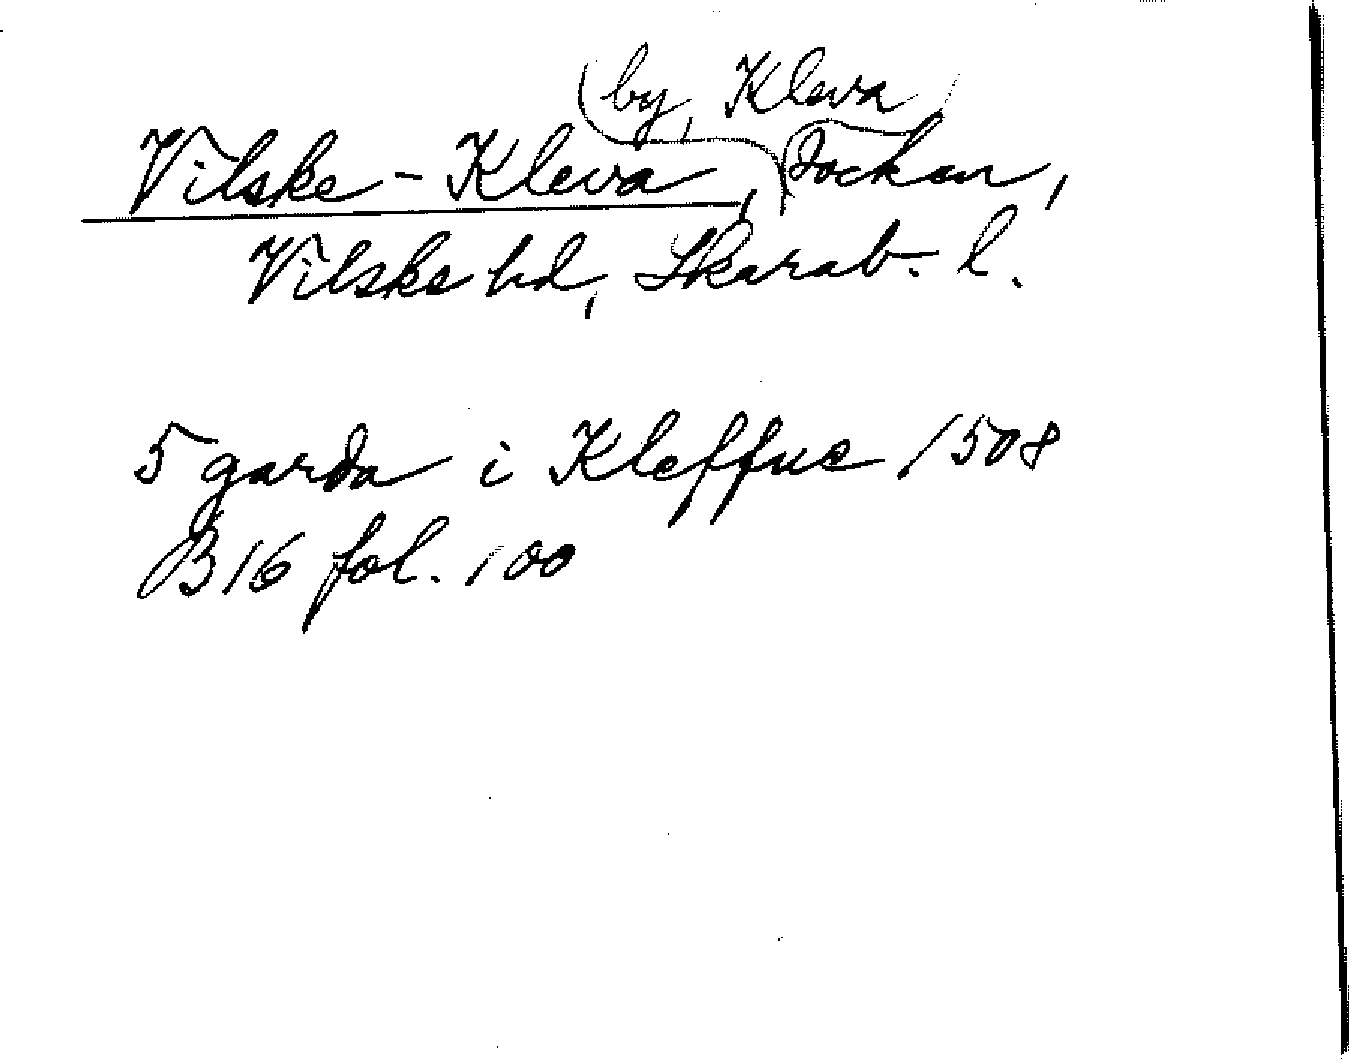 by, Kleva
Vilske-Kleva, sockan,
Vilske hd, Skarab. l.
5 garda i Kleffue 1508
B 16 fol. 100